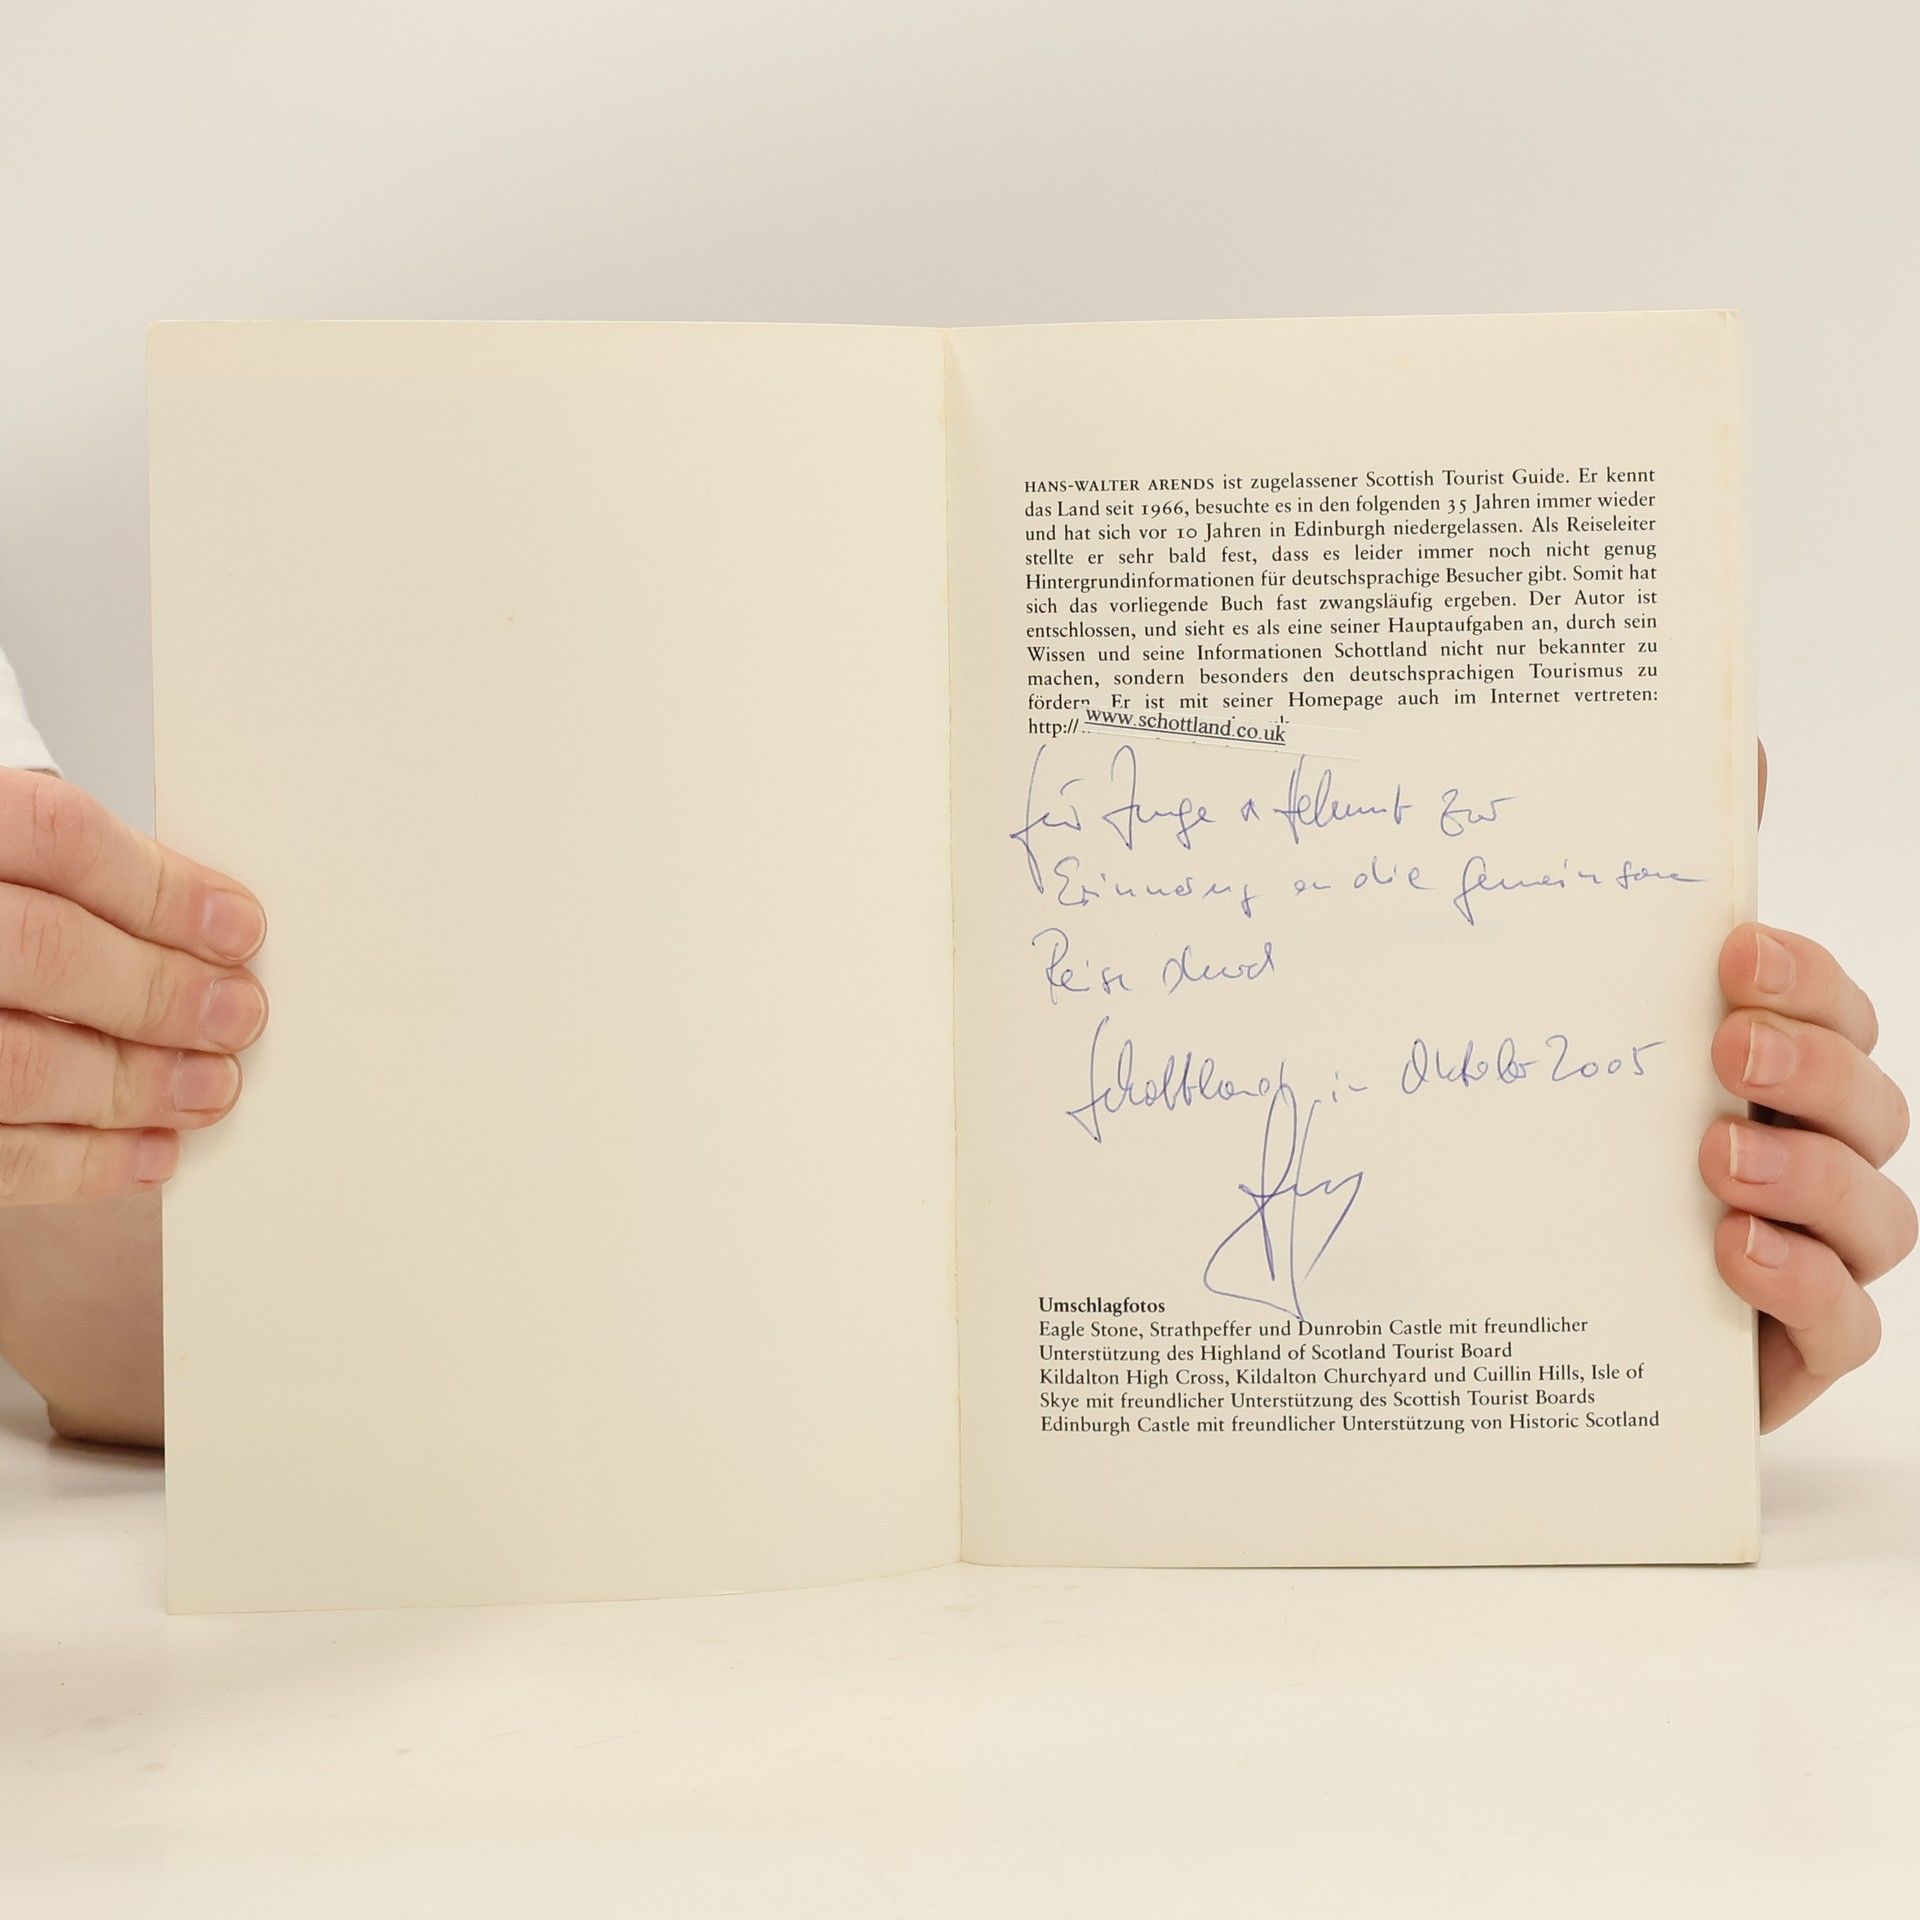 HANS-WALTER ARENDS ist zugelassener Scottish Tourist Guide. Er kennt
das Land seit 1966, besuchte es in den folgenden 35 Jahren immer wieder
und hat sich vor 10 Jahren in Edinburgh niedergelassen. Als Reiseleiter
stellte er sehr bald fest, dass es leider immer noch nicht genug
Hintergrundinformationen für deutschsprachige Besucher gibt. Somit hat
sich das vorliegende Buch fast zwangsläufig ergeben. Der Autor ist
entschlossen, und sieht es als eine seiner Hauptaufgaben an, durch sein
Wissen und seine Informationen Schottland nicht nur bekannter zu
machen, sondern besonders den deutschsprachigen Tourismus zu
fördern. Er ist mit seiner Homepage auch im Internet vertreten:
http://www.schottland.co.uk
für Inge & Helmut zur
Erinnerung an die gemeinsame
Reise durch
Schottland im Oktober 2005
Umschlagfotos
Eagle Stone, Strathpeffer und Dunrobin Castle mit freundlicher
Unterstützung des Highland of Scotland Tourist Board
Kildalton High Cross, Kildalton Churchyard und Cuillin Hills, Isle of
Skye mit freundlicher Unterstützung des Scottish Tourist Boards
Edinburgh Castle mit freundlicher Unterstützung von Historic Scotland